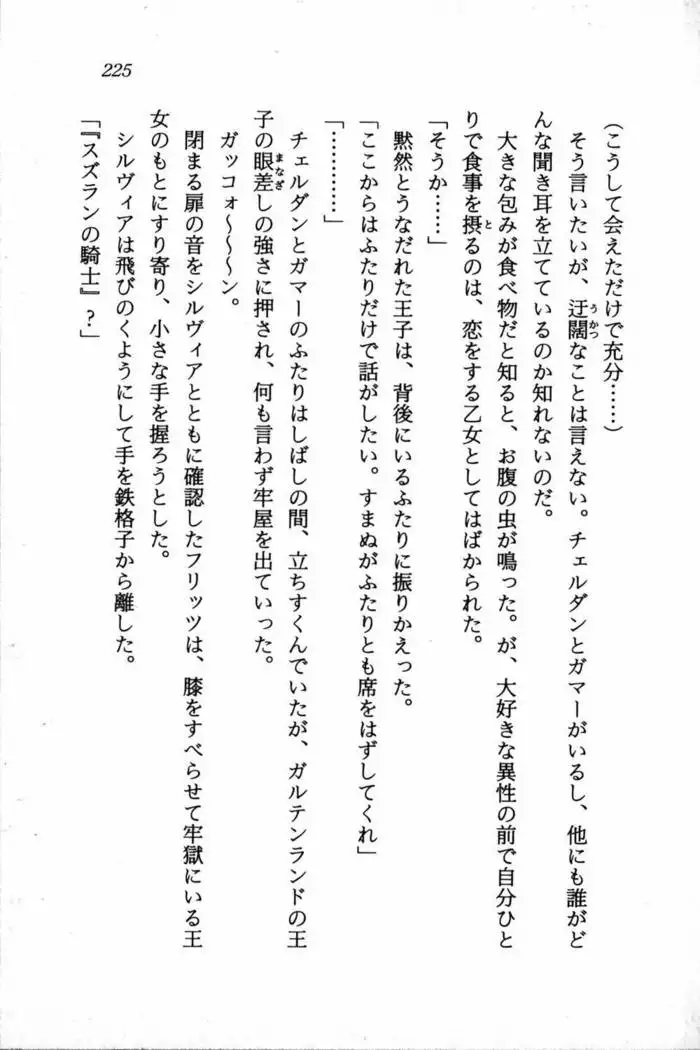 225
(こうして会えただけで充分……)
そう言いたいが、迂闊なことは言えない。チェルダンとガマーがいるし、他にも誰がど
んな聞き耳を立てているのか知れないのだ。
大きな包みが食べ物だと知ると、お腹の虫が鳴った。が、大好きな異性の前で自分ひと
りで食事を摂るのは、恋をする乙女としてはばかられた。
「そうか……」
黙然とうなだれた王子は、背後にいるふたりに振りかえった。
「ここからはふたりだけで話がしたい。すまぬがふたりとも席をはずしてくれ」
「…………」
チェルダンとガマーのふたりはしばしの間、立ちすくんでいたが、ガルテンランドの王
子の眼差しの強さに押され、何も言わず牢屋を出ていった。
ガッコォ〜〜〜ン。
閉まる扉の音をシルヴィアとともに確認したフリッツは、膝をすべらせて牢獄にいる王
女のもとにすり寄り、小さな手を握ろうとした。
シルヴィアは飛びのくようにして手を鉄格子から離した。
「『スズランの騎士』?」